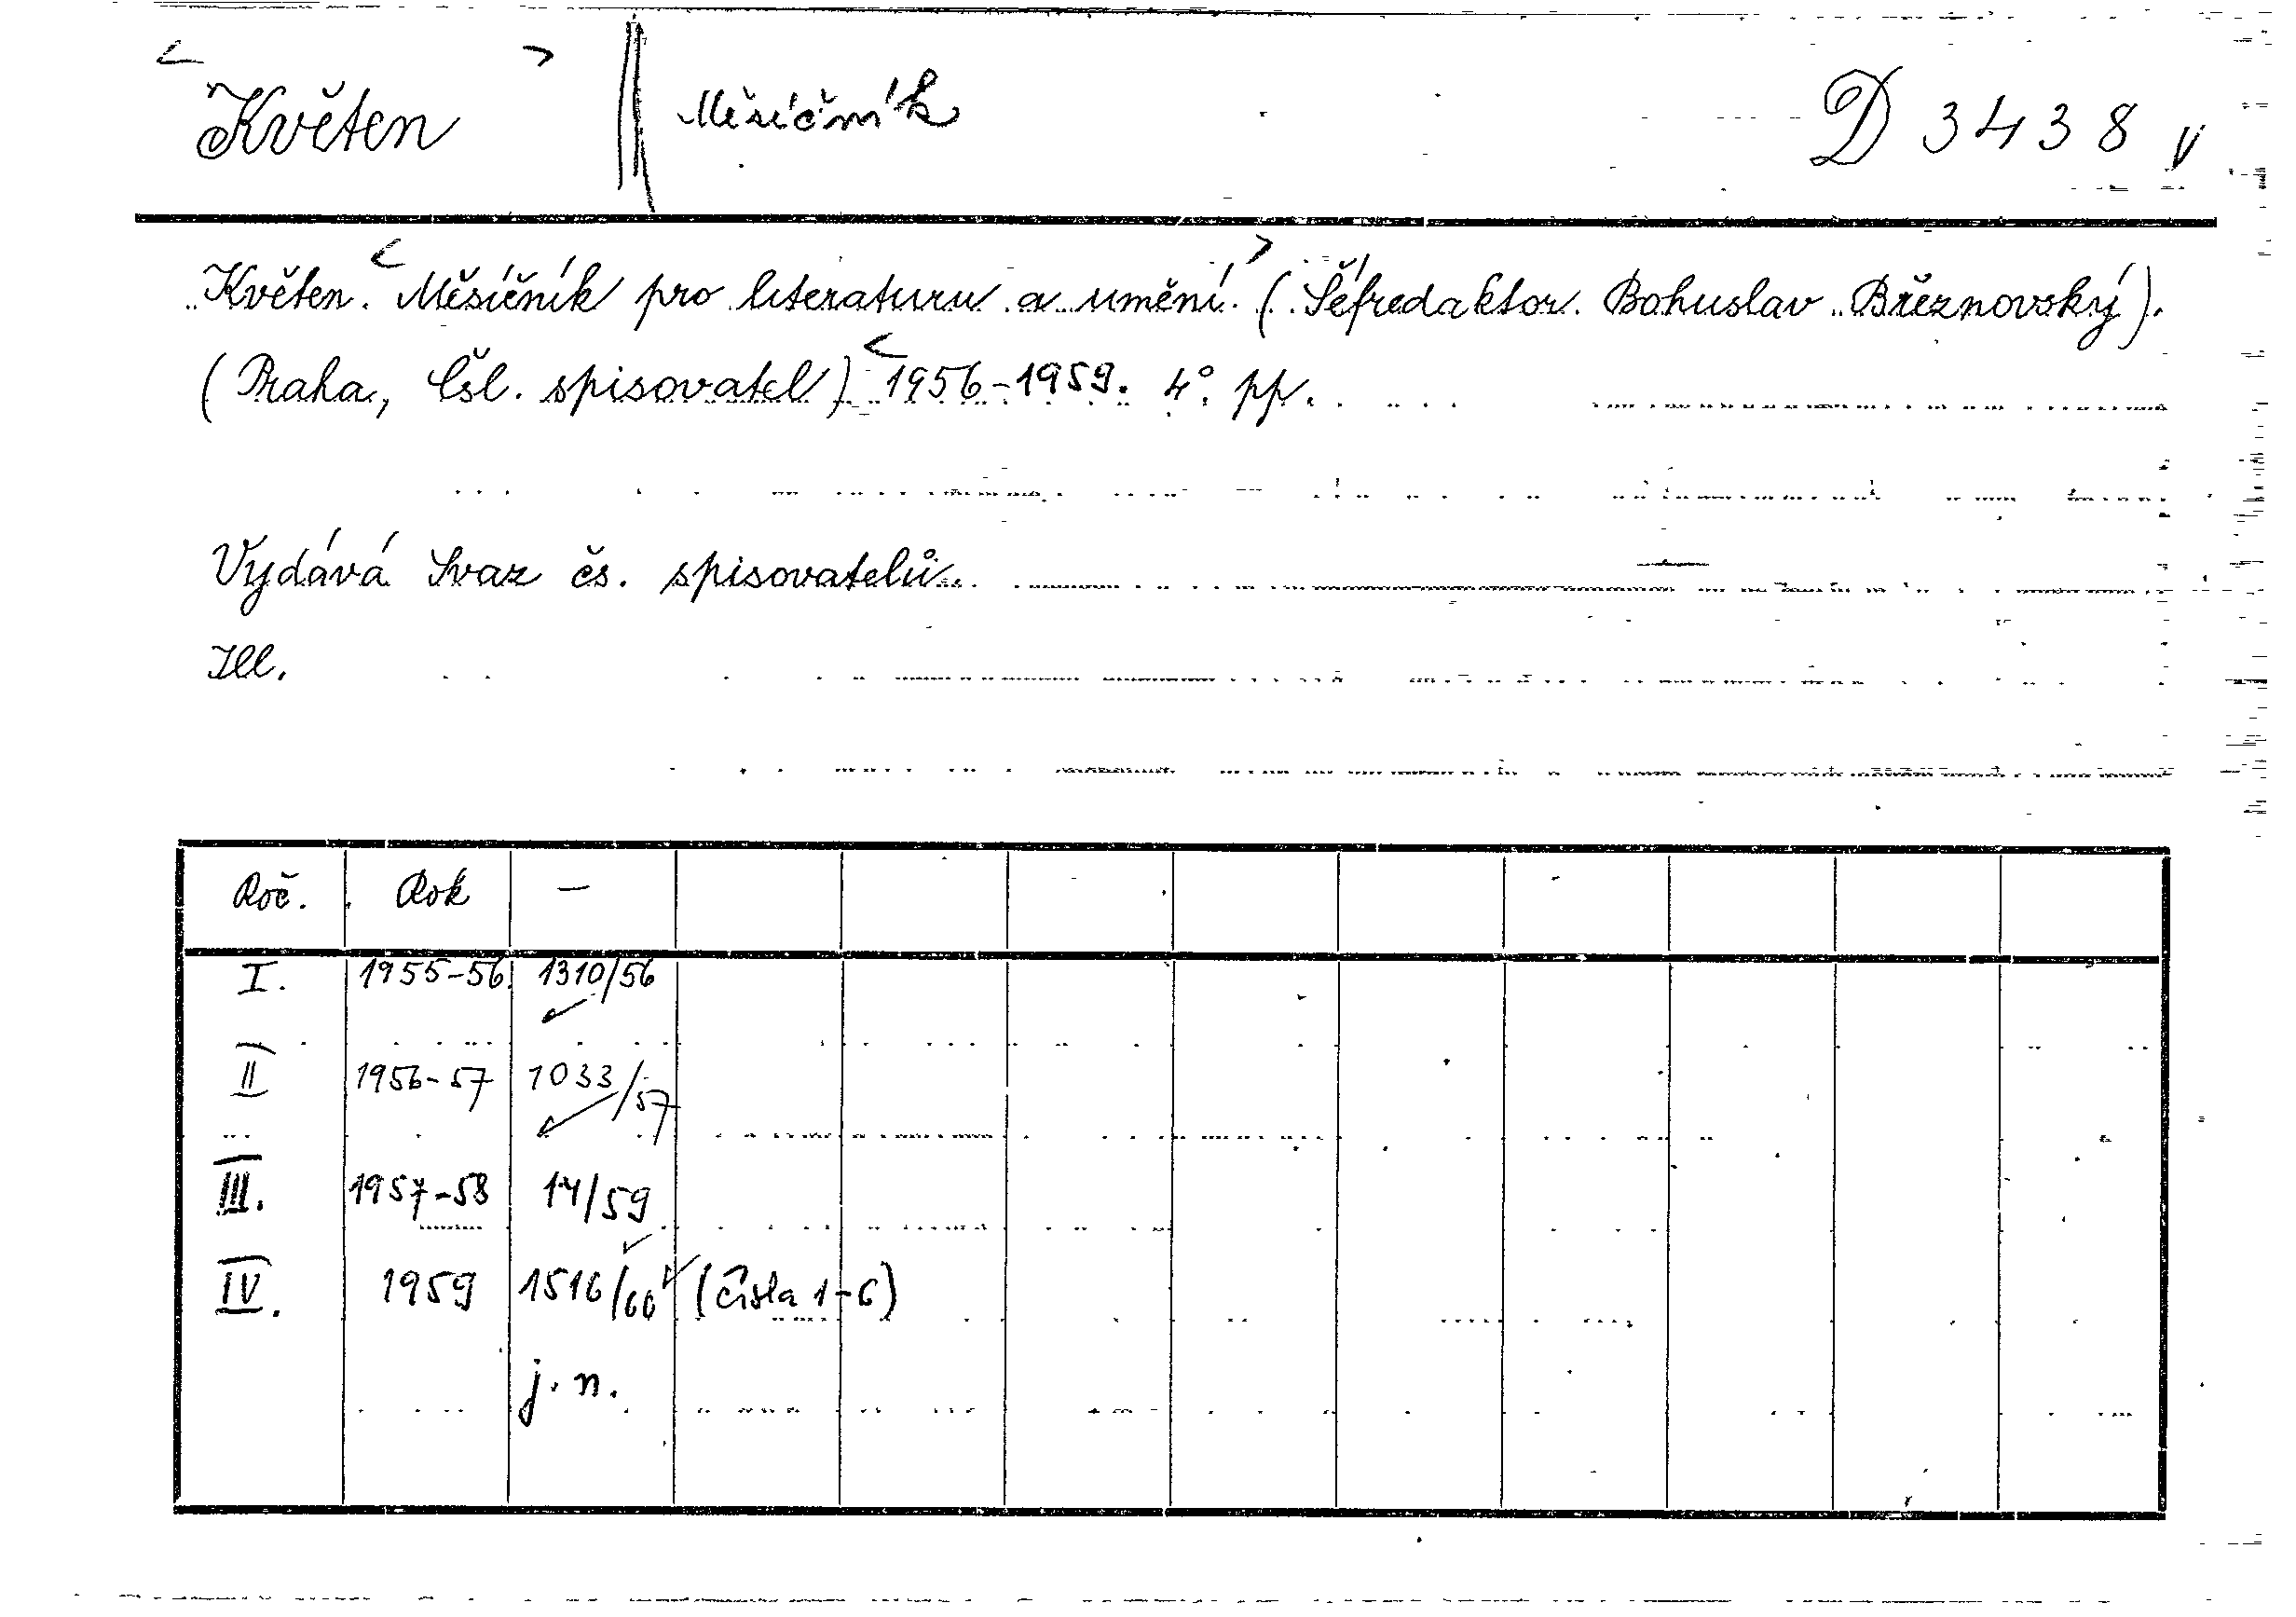 < Květen > || Měsíčník D 3438 v
Květen. < Měsíčník pro literaturu a umění. > (Šéfredaktor Bohuslav Březnovský).
(Praha, Čsl. spisovatel) < 1956-1959. 4°. pp.
Vydává Svaz čs. spisovatelů.
Ill.
Roč. Rok —
I. 1955-56. 1310/56
II 1956-57 1033/57
III. 1957-58 14/59
IV. 1959 1516/60 (čísla 1-6)
j. n.